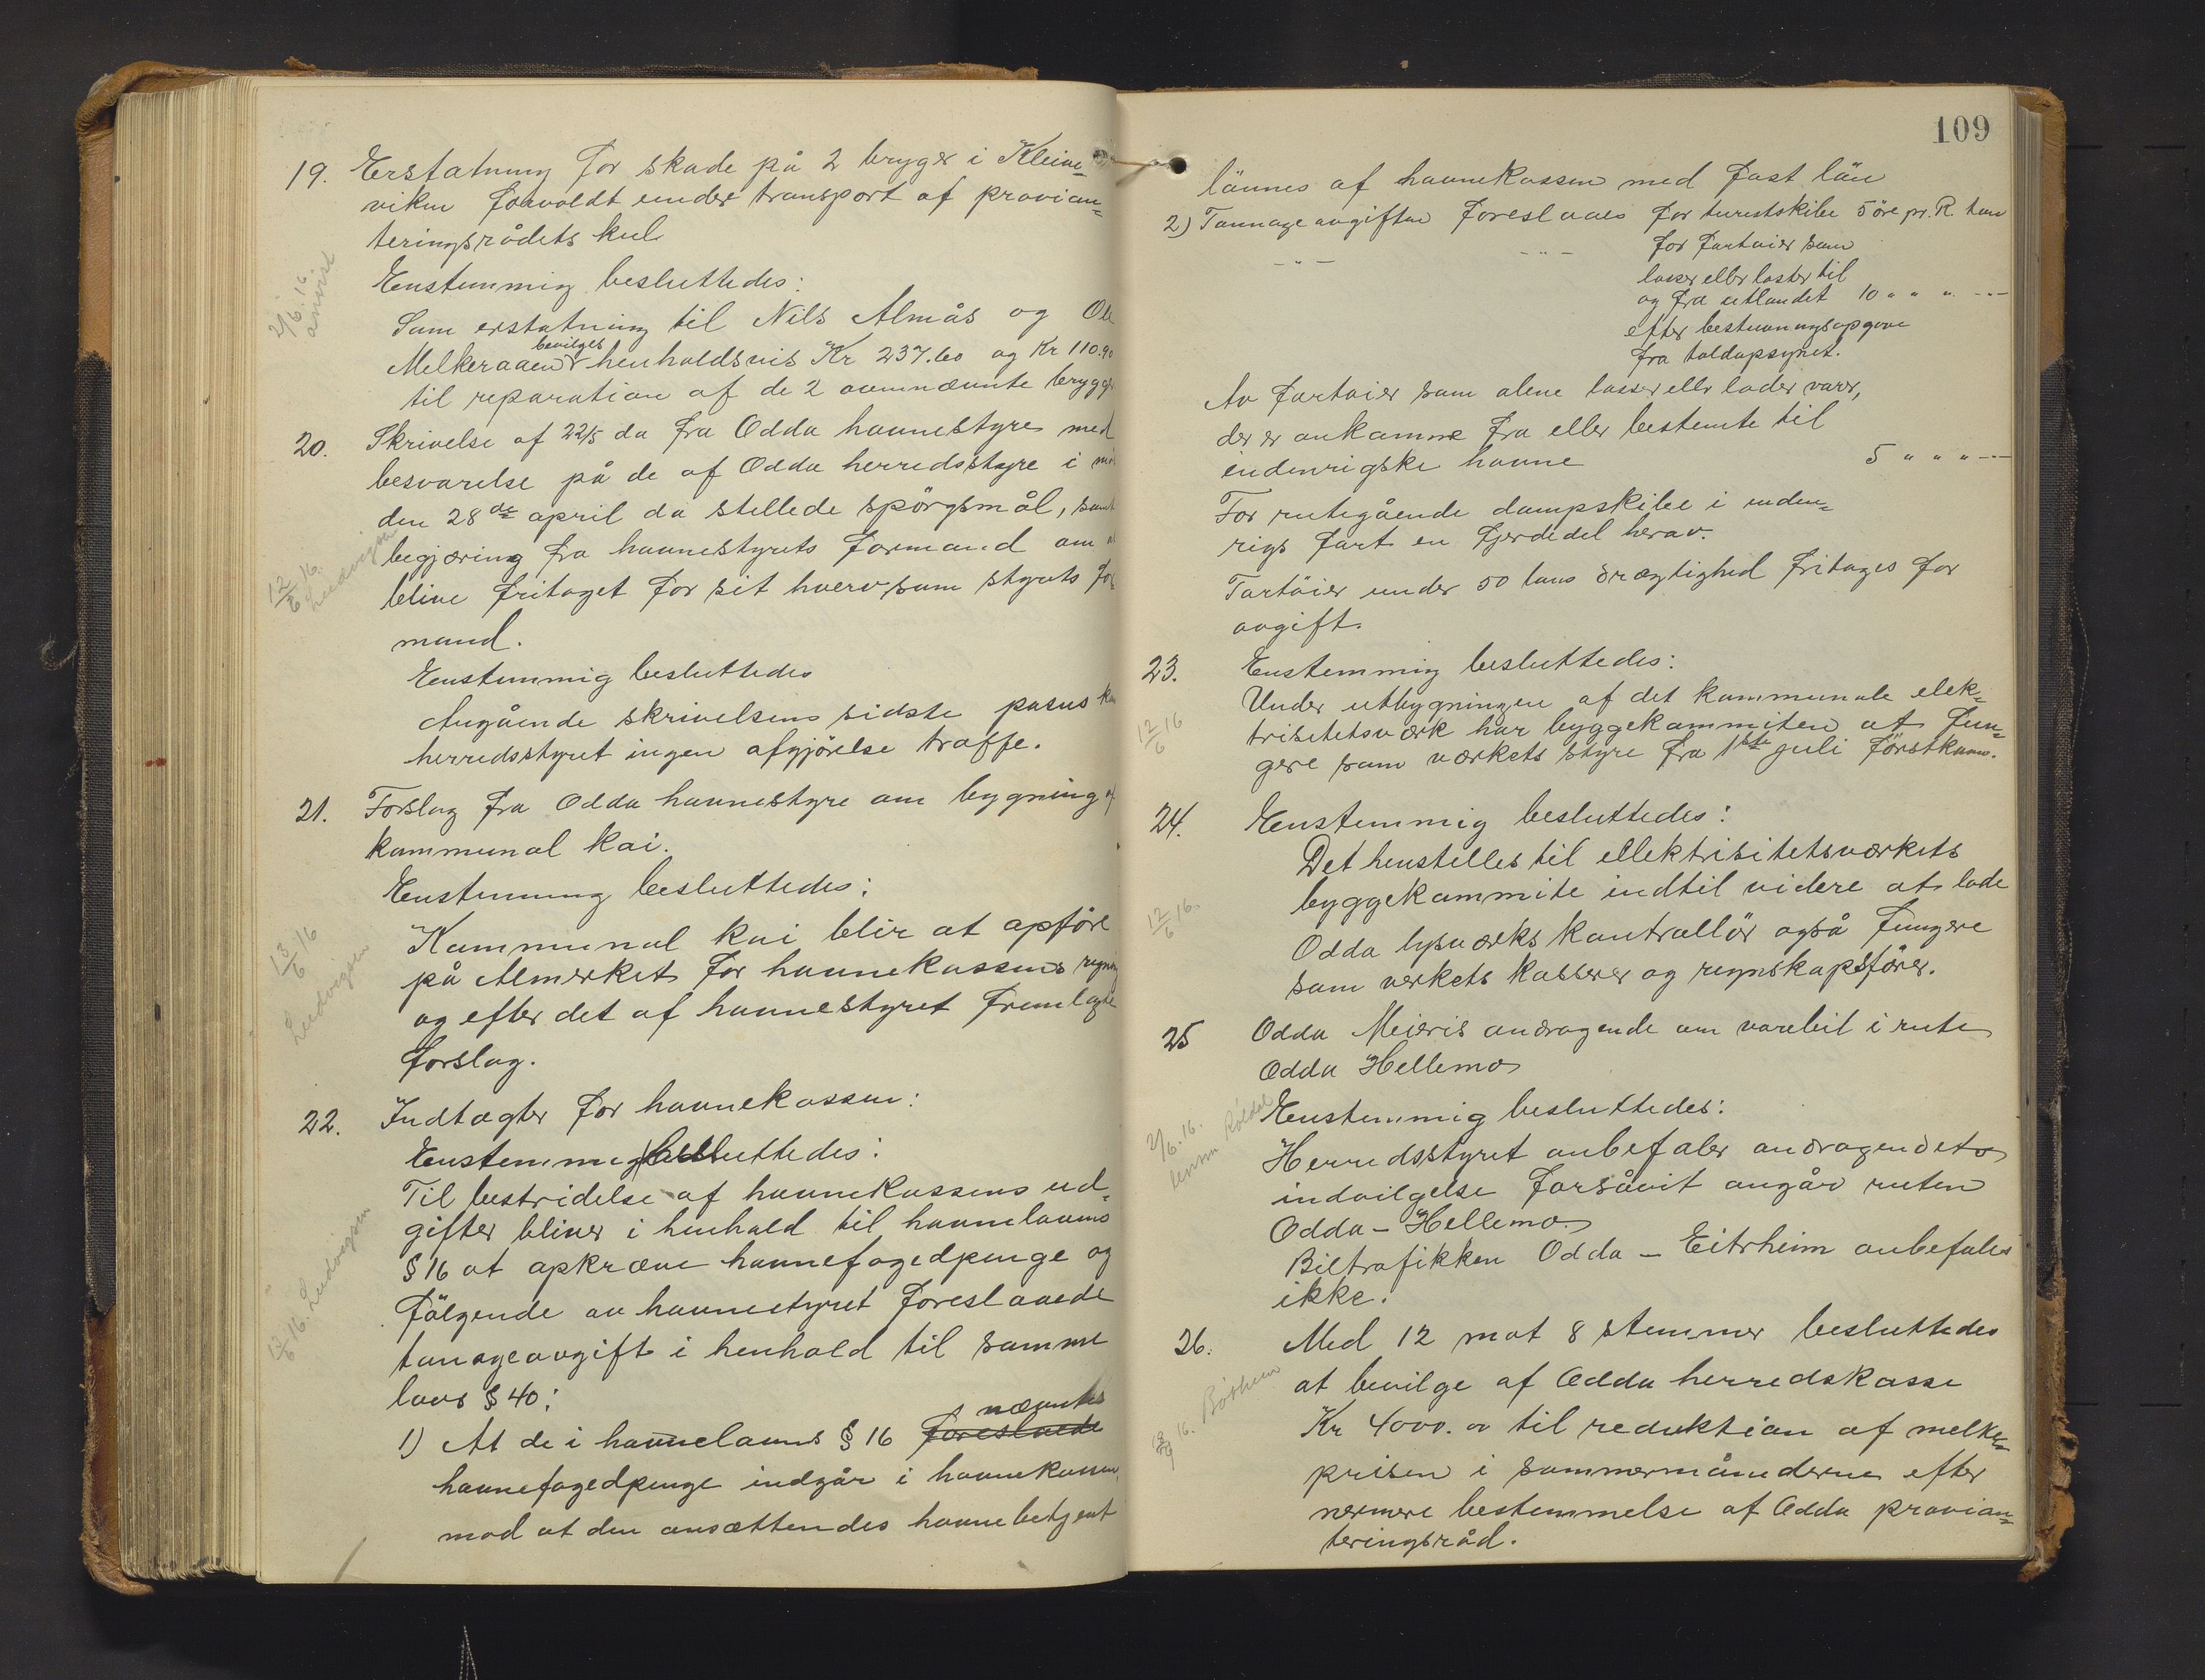 19. Erstatning for skade på 2 brygger i Kleive-
viken forvoldt under transport af provian-
teringsrådets kul
2/6.16
anvist
Enstemmig besluttedes:
Som erstatning til Nils Almås og Ole
Melkeraaen bevilges henholdsvis Kr 237.60 og Kr 110.90
til reparation af de 2 ovennævnte brygger
20. Skrivelse af 22/5 da fra Odda havnestyre med
besvarelse på de af Odda herredsstyre i
den 28de april da stellede spörgsmål, samt
begjæring fra havnestyrets formand om at
blive fritaget for sit hverv som styrets for
mand.
12/6 16.
Ludvigsen
Enstemmig besluttedes
Angående skrivelsens sidste passus kan
herredsstyret ingen afgjörelse træffe.
21. Forslag fra Odda havnestyre om bygning af
kommunal kai.
Enstemmig besluttedes:
Kommunal kai blir at opföre
på Almerket for havnekassens regning
og efter det af havnestyret fremlagte
forslag.
13/6 16
Ludvigsen
22. Indtægter for havnekassen:
Enstemmig besluttedes:
Til bestridelse af havnekassens ud-
gifter bliver i henhold til havnelovens
§ 16 at opkræve havnefogedpenge og
fölgende av havnestyret foreslaaede
tonageavgift i henhold til samme
lovs § 40:
12/6 16. Ludvigsen
1) At de i havnelovens § 16 foreslaaede nævnte
havnefogedpenge indgår i havnekassen
mod at den ansættendes havnebetjent
109
lönnes af havnekassen med fast lön
2) Tonnageavgiften foreslaaes for turistskibe 5 öre pr. R. ton
- " - - " - for fartöier som
losser eller laster til
og fra utlandet 10 " " " - -
efter bestuvningsopgave
fra toldopsynet.
Av fartöier som alene losser eller lader varer,
der er ankomne fra eller bestemte til
indenrigske havne 5 " " " - -
For rutegående dampskibe i inden-
rigs fart en fjerdedel herav.
Fartöier under 50 tons drægtighed fritages for
avgift.
23. Enstemmig besluttedes:
Under utbygningen af det kommunale elek-
trisitetsværk har byggekommiteen at fun-
gere som værkets styre fra 1ste juli förstkom.
12/6 16
24. Enstemmig besluttedes:
Det henstilles til ellektrisitetsværkets
byggekommite indtil videre at lade
Odda lysværks kontrollör også fungere
som verkets kasserer og regnskapsförer.
12/6 16.
25 Odda Meieris andragende om varebil i rute
Odda Hellemo
Enstemmig besluttedes:
Herredsstyret anbefaler andragendets
indvilgelse forsåvit angår ruten
Odda - Hellemo.
Biltrafikken Odda - Eitrheim anbefales
ikke.
2/6.16.
26. Med 12 mot 8 stemmer besluttedes
at bevilge af Odda herredskasse
Kr 4000.00 til reduktion af melke-
prisen i sommermånederne efter
nærmere bestemmelse af Odda provian-
teringsråd.